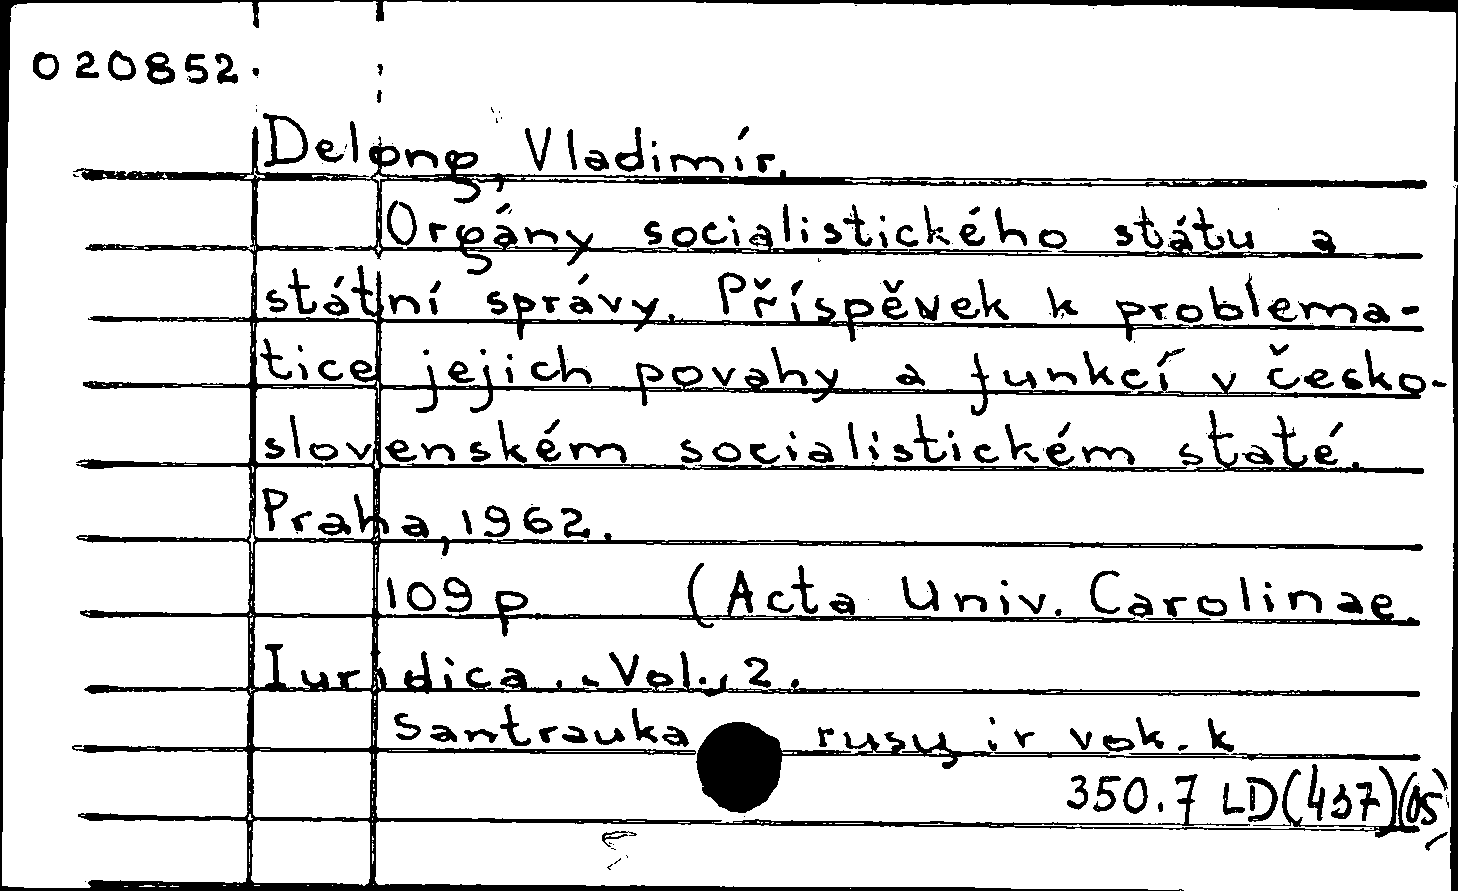 020852.
Delong, Vladimír.
Orgány socialistického státu a
státní správy. Příspěvek k problema-
tice jejich povahy a funkcí v česko-
slovenském socialistickém staté.
Praha, 1962.
109 p. (Acta Univ. Carolinae.
Iuridica... Vol., 2.
Santrauka rusų ir vok. k
350.7 LD(437)(05)